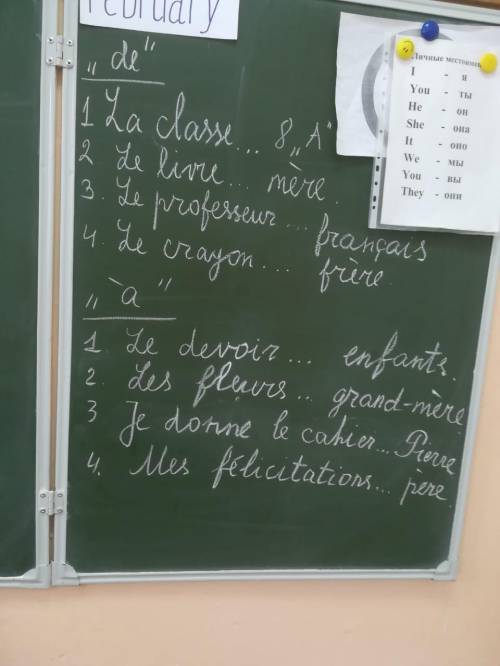 February
„de"
1 La classe... 8 „A"
2 Le livre... mère.
3. Le professeur... français
4. Le crayon... frère.
„à"
1. Le devoir... enfants.
2. Les fleurs... grand-mère
3 Je donne le cahier... Pierre
4. Mes félicitations... père.
Личные местоимен
I - я
You - ты
He - он
She - она
It - оно
We - мы
You - вы
They - они